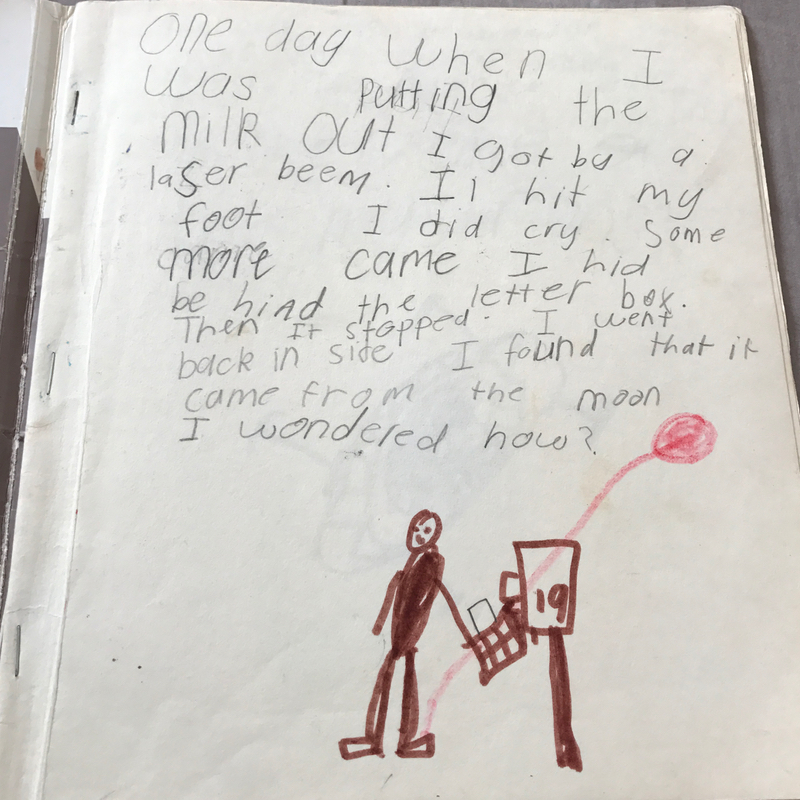 One day when I
was putting the
milk out I got by a
laser beem. It hit my
foot I did cry. Some
more came I hid
be hind the letter box.
Then It stopped. I went
back in side I found that it
came from the moon
I wondered how?
19